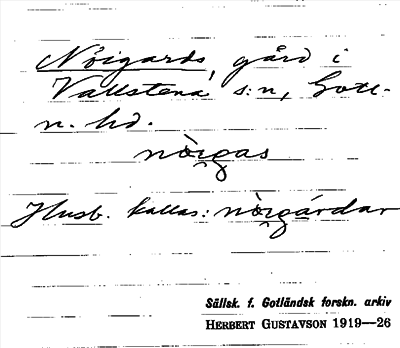 Nöigards, gård i
Vallstena s:n, Gotl-
n. hd.
nòi̯gas
Husb. kallas: nòi̯gárdar
Sällsk. f. Gotländsk forskn. arkiv
HERBERT GUSTAVSON 1919—26